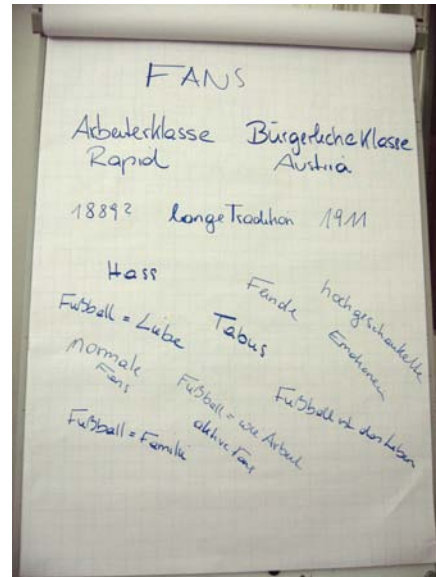 FANS
Arbeiterklasse Bürgerliche Klasse
Rapid Austria
1889? lange Tradition 1911
Hass
Feinde
hochgeschaukelte
Emotionen
Fußball = Liebe
Tabus
normale
Fans
Fußball = wie Arbeit
aktive Fans
Fußball ist das Leben
Fußball = Familie